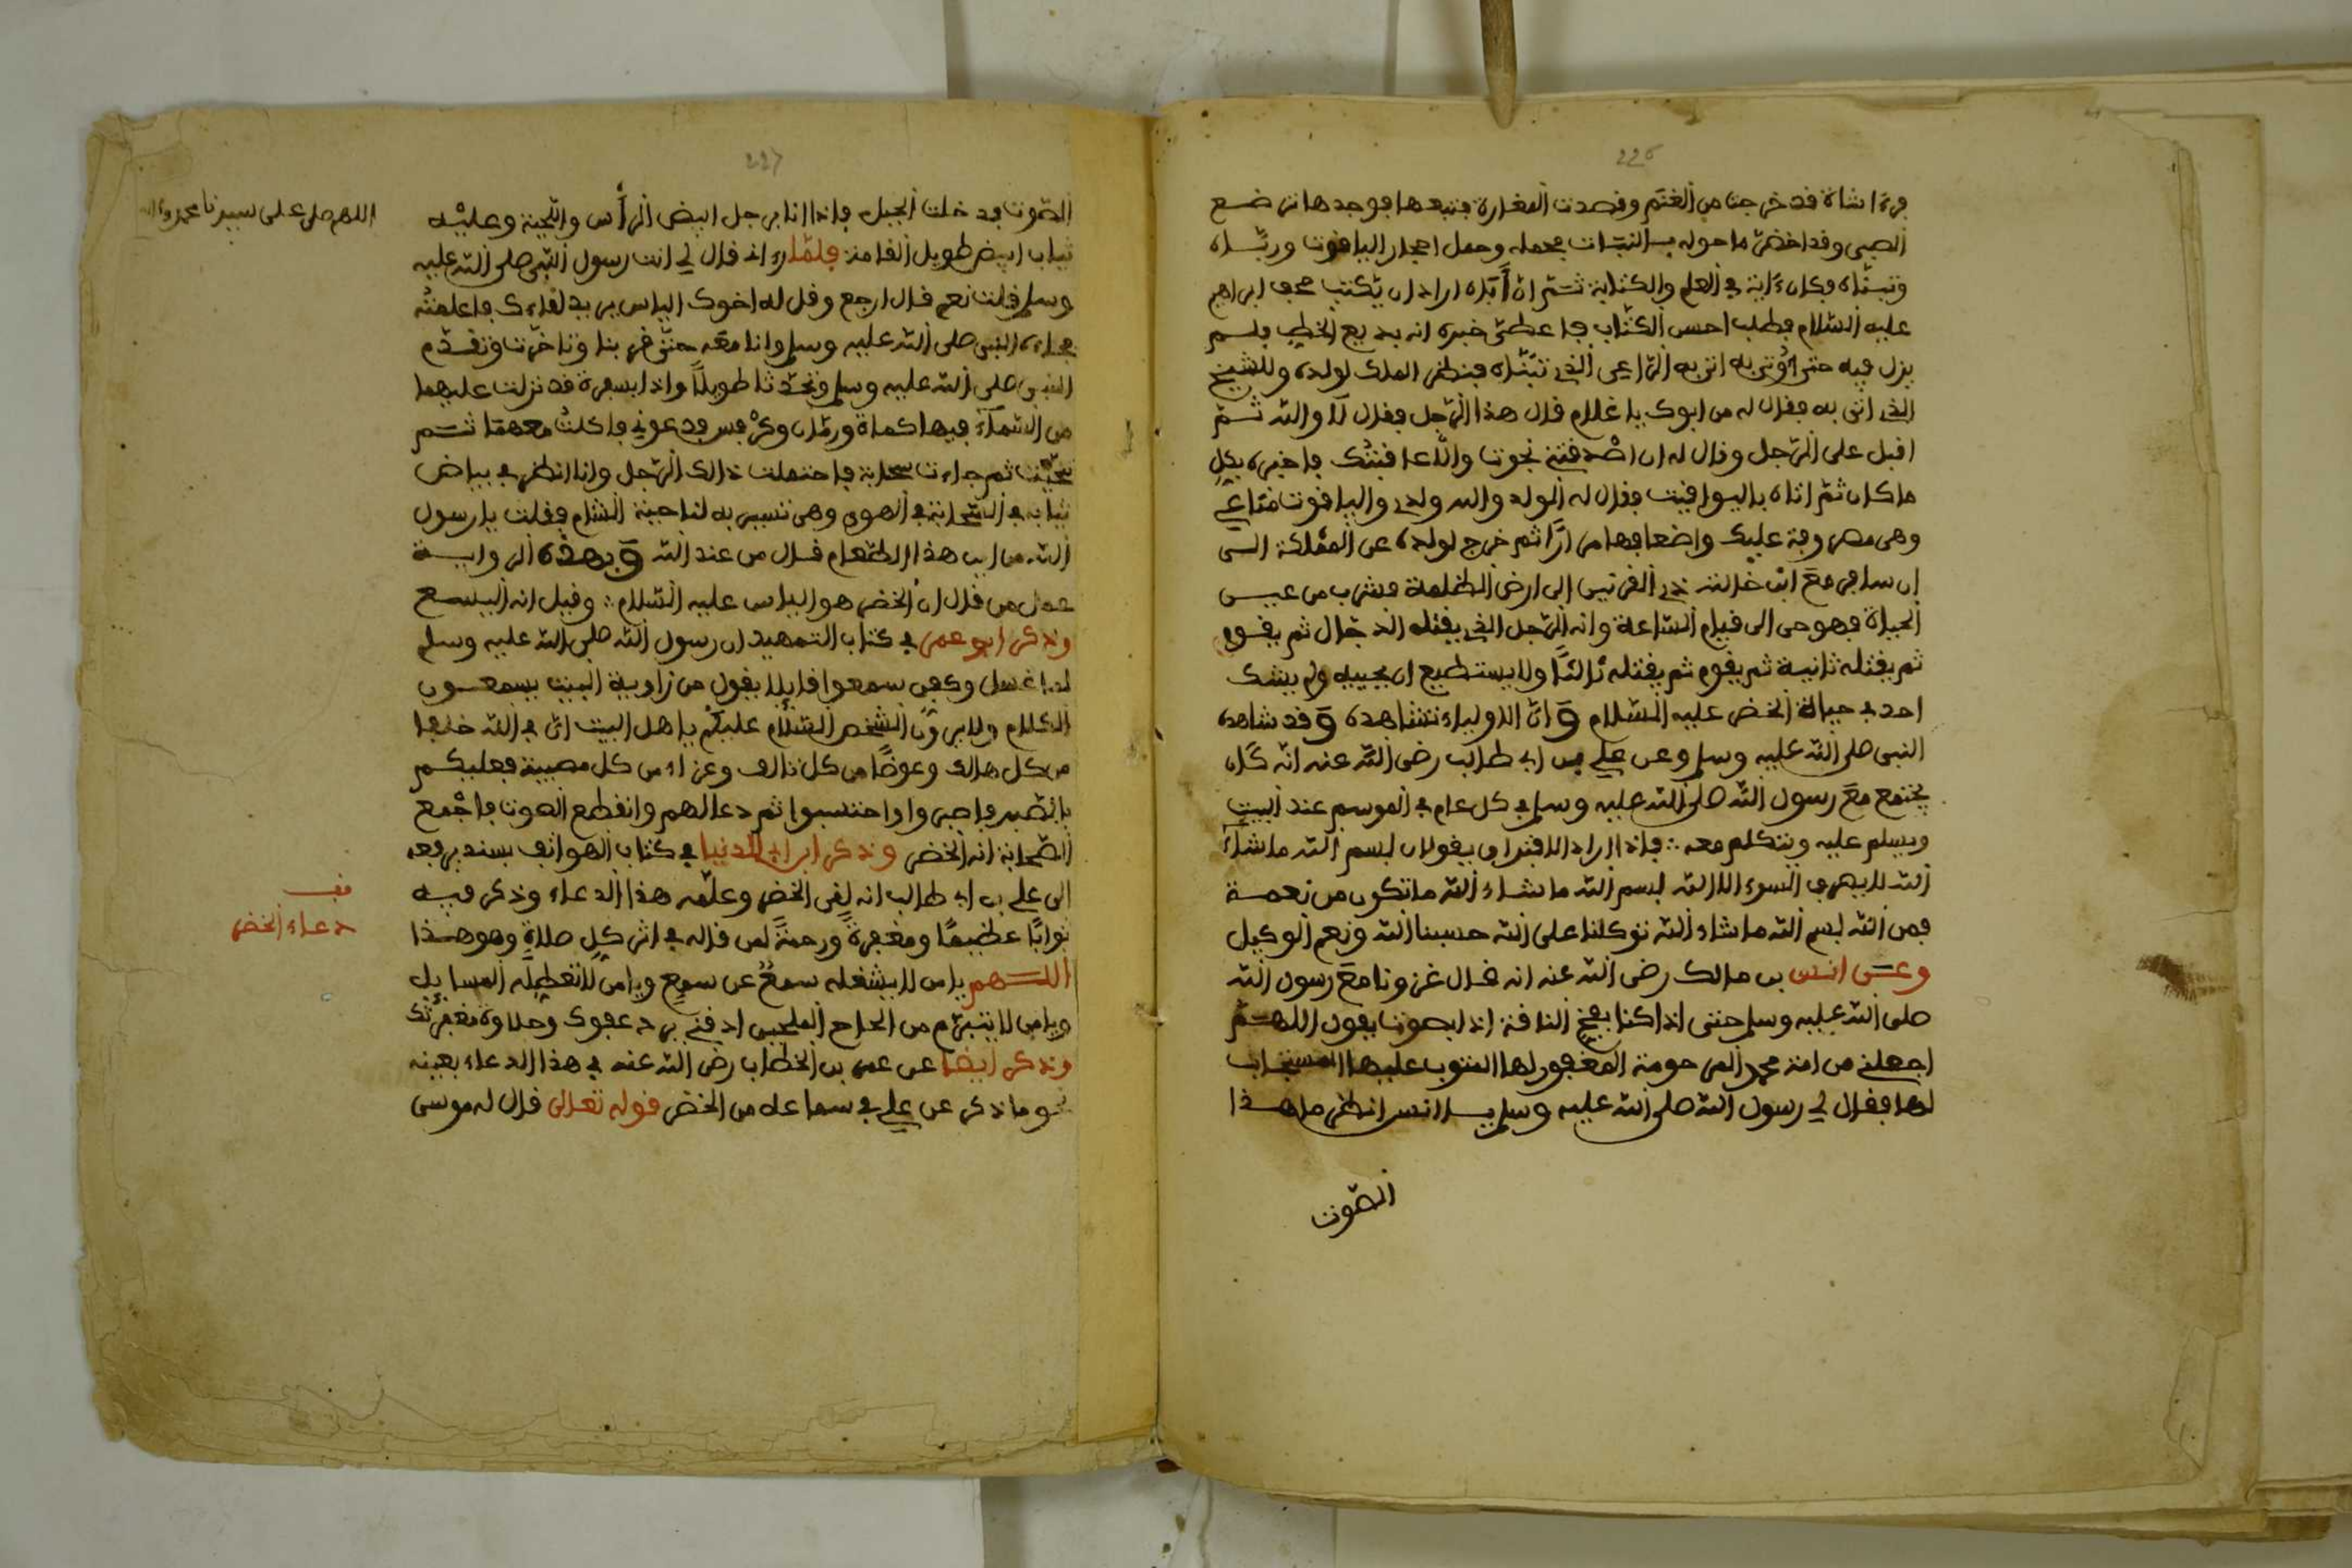 226
فرءا شاة قد خرجت من الغنم وقصدت المغارة فتبعها فوجدها ترضع
الصبي وقد اخضر ما حوله بالنبات فحمله وحمل احجار الياقوت وربّاه
وتبنّاه فكان ءاية في العلم والكتابة ثم ان أباه اراد ان يكتب صحف ابراهيم
عليه السلام فطلب احسن الكتّاب فاعطي خبره انه بديع الخط فلم
يزل فيه حتى أوتي به اتى به الراعي الذي تبنّاه فنظر الملك لولده وللشيخ
الذي اتى به فقال له من ابوك يا غلام قال هذا الرجل فقال لا والله ثم
اقبل على الرجل وقال له ان اصدقتني نجوت والّا عاقبتك فاخبره بكل
ما كان ثم اتاه باليواقيت فقال له الولد والله ولدي والياقوت متاعي
وهي مصروفة عليك واضعافها من ثم خرج لولده عن المملكة الى
ان سافر مع ابن خالته ذي القرنين الى ارض الظلمة فشرب من عين
الحياة فهو حي الى قيام الساعة وانه الرجل الذي يقتله الدجّال ثم يقوم
ثم يقتله ثانية ثم يقوم ثم يقتله ثالثا ولا يستطيع ان يجيبه ولم يشك
احد في حياة الخضر عليه السلام وان الاولياء تشاهده وقد شاهده
النبي صلى الله عليه وسلم وعن علي بن ابي طالب رضي الله عنه انه كان
يجتمع مع رسول الله صلى الله عليه وسلم في كل عام في الموسم عند البيت
ويسلم عليه ويتكلم معه فاذا اراد الافتراق يقولان بسم الله ما شاء
الله لا يصرف السوء الا الله بسم الله ما شاء الله ما تكون من نعمة
فمن الله بسم الله ما شاء الله توكلنا على الله حسبنا الله ونعم الوكيل
وعن انس بن مالك رضي الله عنه انه قال غزونا مع رسول الله
صلى الله عليه وسلم حتى اذا كنا بفج الناقة اذا بصوت يقول اللهم
اجعلني من امة محمد المرحومة المغفور لها المتوب عليها المستجاب
لها فقال لي رسول الله صلى الله عليه وسلم يا انس انظر ما هذا
الصوت
227
الصوت فدخلت الجبل فاذا انا برجل ابيض الرأس واللحية وعليه
ثياب ابيض طويل القامة فلما رءاني قال لي انت رسول النبي صلى الله عليه
وسلم فقلت نعم قال ارجع وقل له اخوك الياس يريد لقاءك فاعلمته
فجاءه النبي صلى الله عليه وسلم وانا معه حتى قربنا وتاخرت وتقدم
النبي صلى الله عليه وسلم وتحدثا طويلًا واذا بسفرة قد نزلت عليهما
من السماء فيها كماة ورمان وكرفس فدعوني فاكلت معهما ثم
تنحيت ثم جاءت سحابة فاحتملت ذالك الرجل وانا انظر في بياض
ثيابه في السحابة في الهوى وهي تسير به لناحية الشام فقلت يا رسول
الله من اين هذا الطعام قال من عند الله وبهذه الرواية
من قال ان الخضر هو الياس عليه السلام وقيل انه اليسع
وذكر ابو عمر في كتاب التمهيد ان رسول الله صلى الله عليه وسلم
لما غسل وكفن سمعوا قايلا يقول من زاوية البيت يسمعون
الكلام ولا يرون الشخص السلام عليكم يا هل البيت ان في الله خلفا
من كل هالك وعوضًا من كل تالف وعزاء من كل مصيبة فعليكم
بالصبر فاصبروا واحتسبوا ثم دعا لهم وانقطع الصوت فاجمع
الصحابة انه الخضر وذكر ابن ابي الدنيا في كتاب الهواتف بسند يرفعه
الى علي بن ابي طالب انه لقي الخضر وعلمه هذا الدعاء وذكر فيه
ثوابًا عظيمًا ومغفرةً ورحمةً لمن قاله في اثر كل صلاة وهو هذا
اللهم يا من لا يشغله سمعٌ عن سمع ويا من لا تغطله المسايل
ويا من لا يتبرم من الحاح الملحين اذقني برد عفوك وحلاوة مغفرتك
وذكر ايضا عن عمر بن الخطاب رضي الله عنه في هذا الدعاء بعينه
نحو ما ذكر عن علي في سماعه من الخضر قوله تعالى قال له موسى
اللهم صلى على سيدنا محمد وءاله
قف
دعاء الخضر